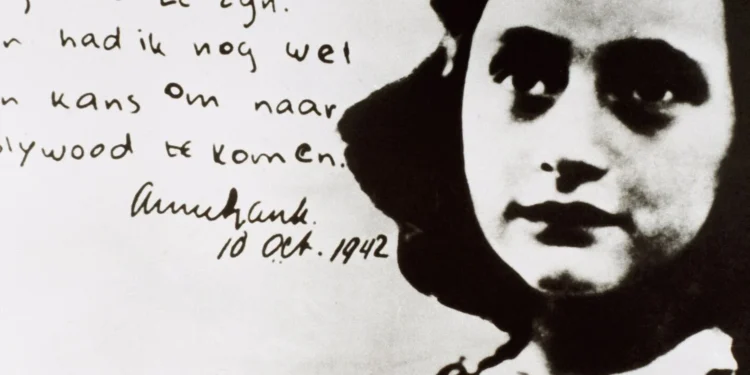 te zijn.
had ik nog wel
kans om naar
lywood te komen.
Annefrank.
10 Oct. 1942